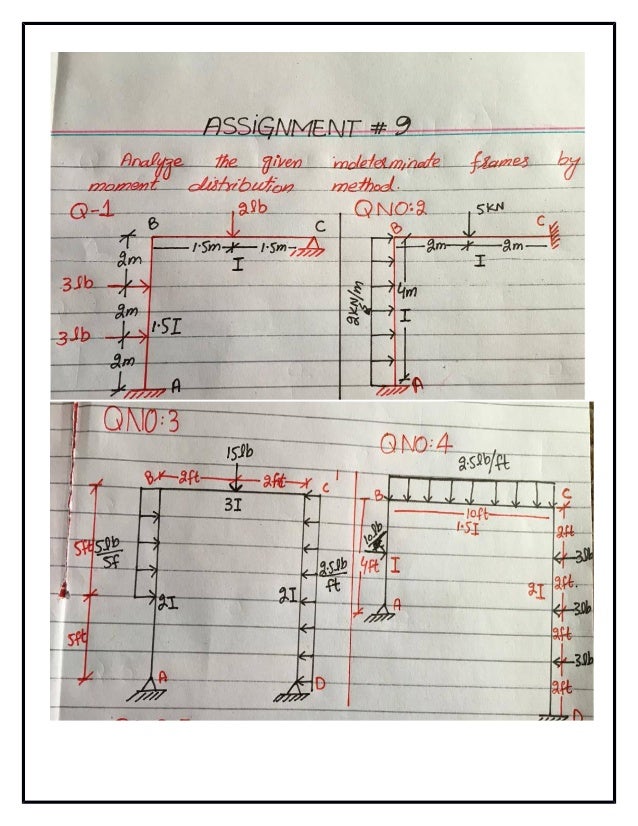 ASSIGNMENT # 9
Analyze the given indeterminate frames by
moment distribution method.
Q-1
2lb
B
C
1.5m
1.5m
I
2m
3lb
2m
1.5I
3lb
2m
A
QNO:2
5KN
B
C
2m
2m
I
2KN/m
4m
I
A
QNO:3
15lb
B
2ft
2ft
C
3I
5ft
5lb
5f
2.5lb
ft
2I
2I
5ft
A
D
QNO:4
2.5lb/ft
B
C
10ft
1.5I
2ft
10lb
3lb
4ft
I
2I
2ft.
3lb
A
2ft
3lb
2ft
D